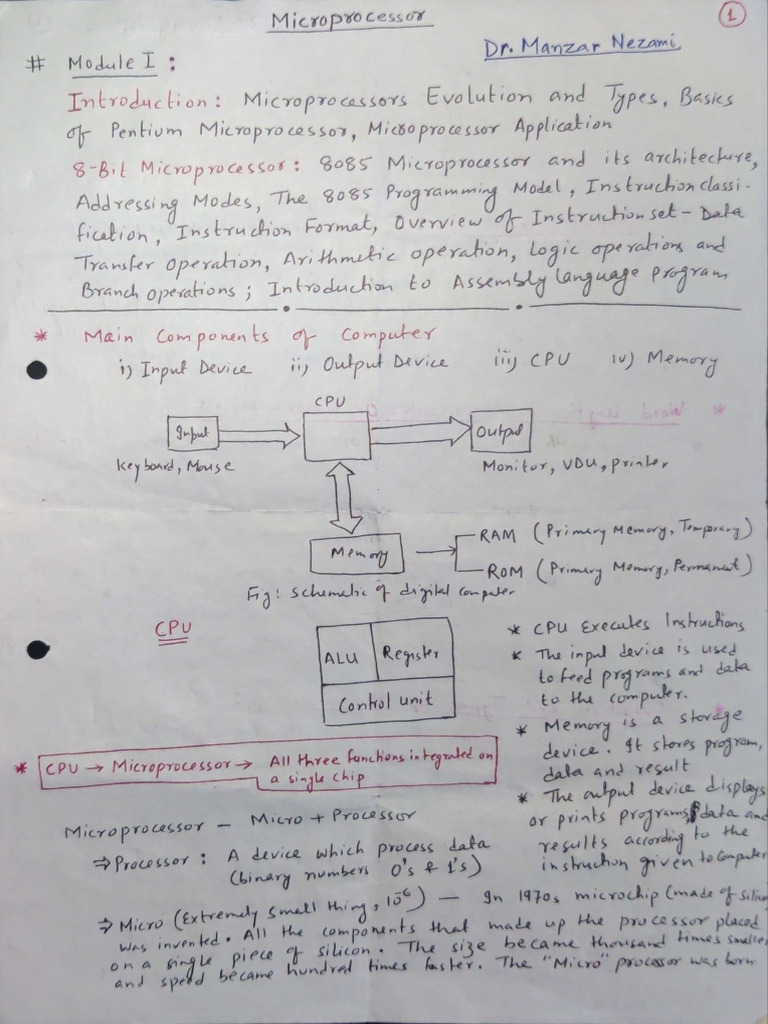 Microprocessor
1
Dr. Manzar Nezami.
# Module I :
Introduction: Microprocessors Evolution and Types, Basics
of Pentium Microprocessor, Microprocessor Application
8-Bit Microprocessor: 8085 Microprocessor and its architecture,
Addressing Modes, The 8085 Programming Model, Instruction classi-
fication, Instruction Format, Overview of Instruction set - Data
Transfer operation, Arithmetic operation, Logic operations and
Branch operations; Introduction to Assembly language program
* Main Components of Computer
i) Input Device ii) Output Device iii) CPU iv) Memory
CPU
Input
Output
Keyboard, Mouse
Monitor, VDU, printer
Memory
RAM (Primary Memory, Temporary)
ROM (Primary Memory, Permanent)
Fig: Schematic of digital computer
CPU
ALU
Register
Control unit
* CPU Executes Instructions
* The input device is used
to feed programs and data
to the computer.
* Memory is a storage
device. It stores program,
data and result
* The output device displays
or prints programs, data and
results according to the
instruction given to computer
* CPU → Microprocessor → All three functions integrated on
a single chip
Microprocessor - Micro + Processor
⇒ Processor : A device which process data
(binary numbers 0's & 1's)
⇒ Micro (Extremely small thing, 10⁻⁶) — In 1970s microchip (made of
was invented. All the components that made up the processor placed
on a single piece of silicon. The size became thousand times smaller
and speed became hundred times faster. The "Micro" processor was born